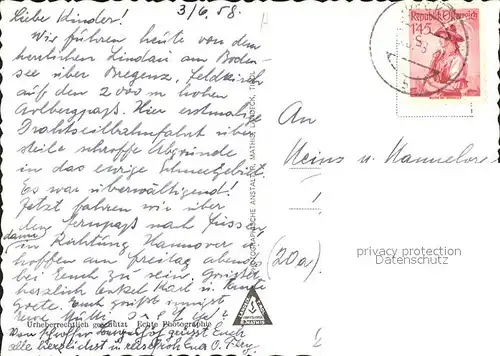 3/6.58.
Liebe Kinder!
Wir führen heute von dem
herrlichen Lindau am Boden-
see über Bregenz, Feldkirch
auf den 2000 m hohen
Arlbergpaß. Hier erstmalige
Drahtseilbahnfahrt über
steile schroffe Abgründe
in das ewige Schneegebiet.
Es war überwältigend!
Jetzt fahren wir über
den Fernpaß nach Füssen
dann in Richtung Hannover u.
hoffen am Freitag abend
bei Euch zu sein. Grüßt
herzlich Onkel Karl u. Tante
Grete. Euch grüßt innigst
Eure Mutti
Urheberrechtlich geschützt Echte Photographie
Euch
alle herzlichst
Republik Österreich
1.45
S
An
Heinz u. Hannelore
(20a)
privacy protection
Datenschutz